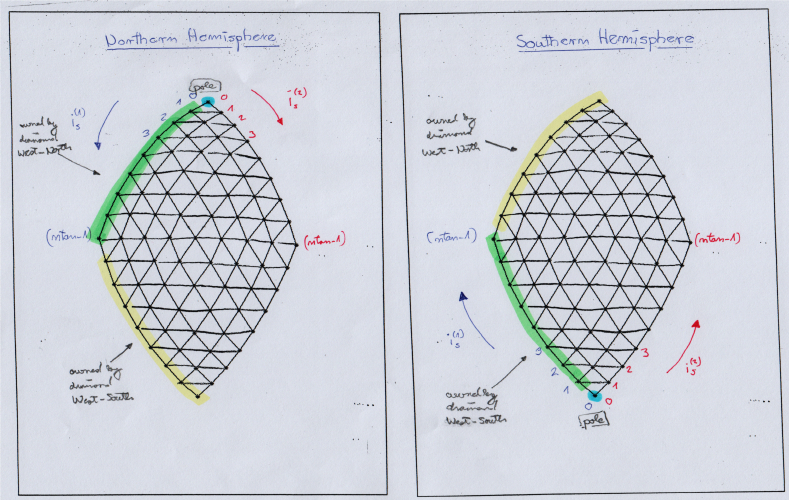 Northern Hemisphere
pole
0 0
1 1
2 2
3 3
i_s^(1)
i_s^(2)
owned by
diamond
West-North
(ntan-1)
(ntan-1)
owned by
diamond
West-South
Southern Hemisphere
owned by
diamond
West-North
(ntan-1)
(ntan-1)
i_s^(1)
i_s^(2)
3 3
2 2
1 1
0 0
owned by
diamond
West-South
pole